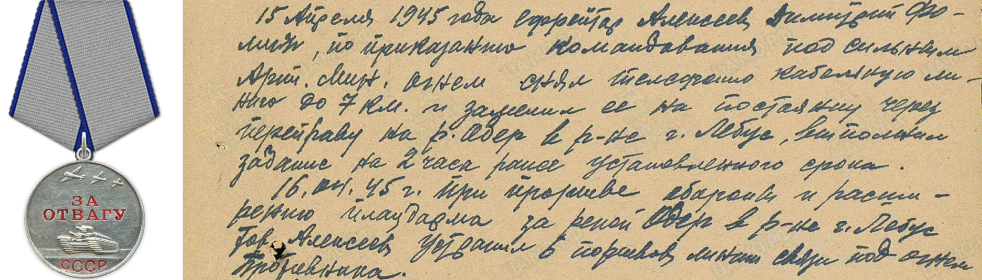 ЗА
ОТВАГУ
СССР
15 Апреля 1945 года ефрейтор Алексеев Димитрий Фо-
мич, по приказанию командования под сильным
Арт. Мин. огнем снял телефонно кабельную ли-
нию до 7 км. и заменил ее на постоянну через
переправу на р. Одер в р-не г. Лебус, выполнил
задание на 2 часа ранее установленного срока.
16.IV.45 г. при прорыве обороны и расши-
рению плацдарма за рекой Одер в р-не г. Лебус
тов. Алексеев устранил 6 порывов линии связи под огнем
противника.